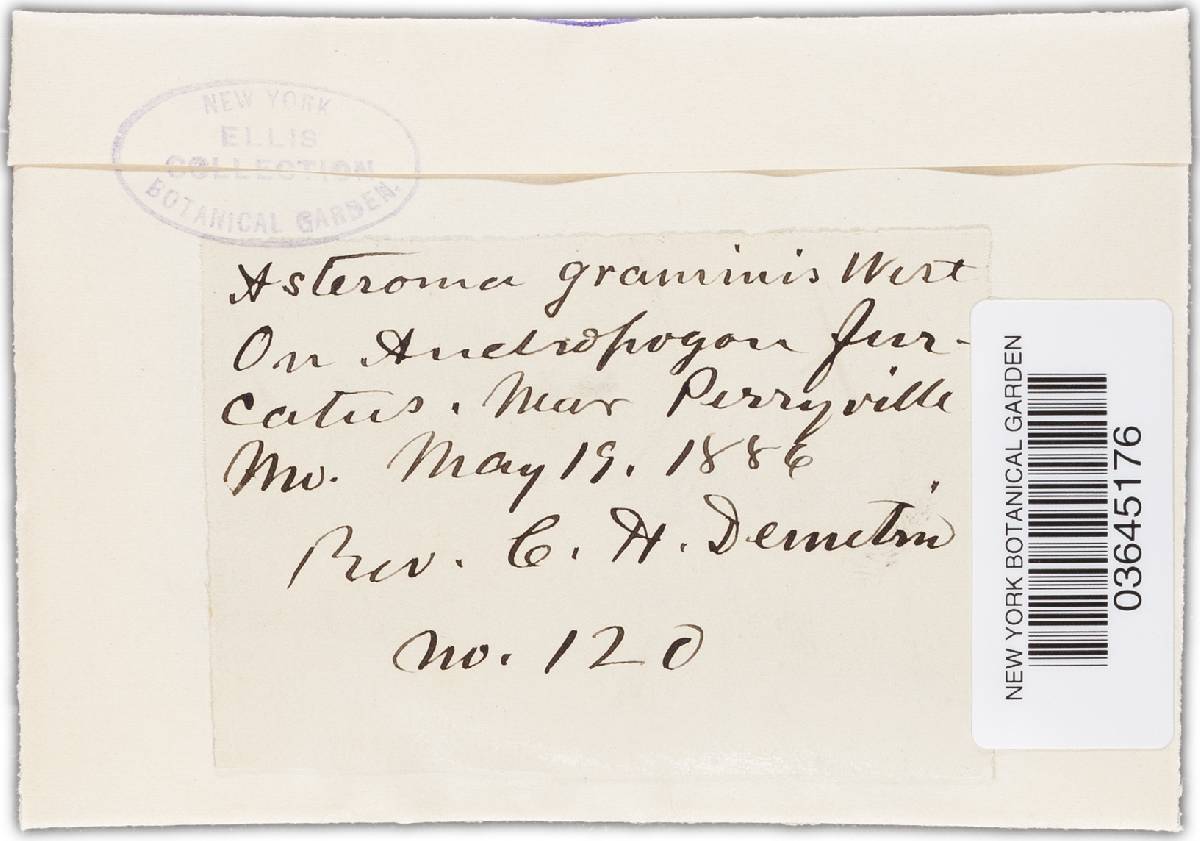 NEW YORK
ELLIS
COLLECTION
BOTANICAL GARDEN.
Asteroma graminis West
On Andropogon fur-
catus. Near Perryville
Mo. May 19. 1886
Rev. C. H. Demetrio
No. 120
NEW YORK BOTANICAL GARDEN
03645176